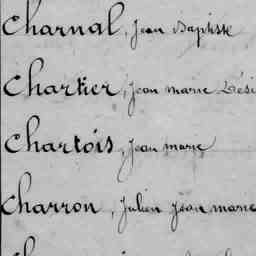 Charnal, Jean Baptiste
Chartier, Jean marie Dési
Chartois, Jean marie
Charron, Julien Jean marie